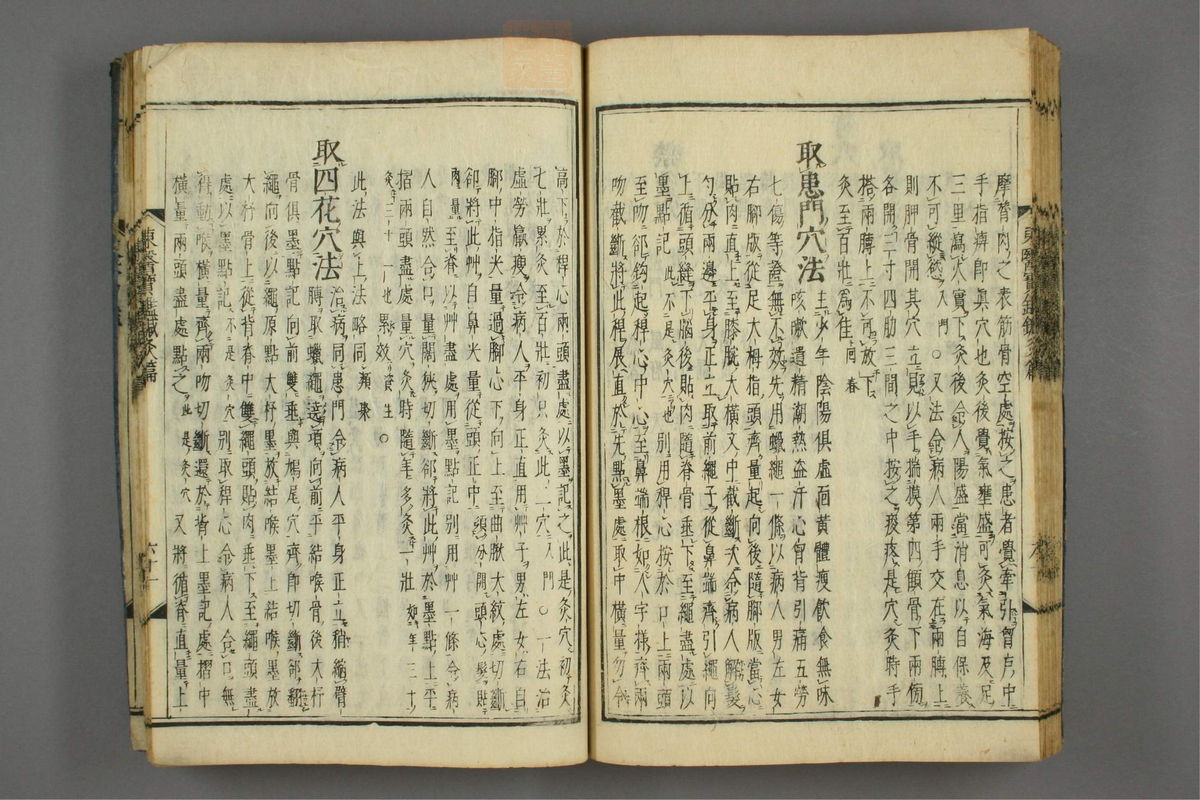 摩脊肉之表筋骨空處按之患者覺牽引胷戶中
手指痺卽眞穴也灸後覺氣壅盛可灸氣海及足
三里瀉火實下灸後令人陽盛當消息以自保養
不可縱慾入門○又法令病人兩手交在兩膊上
則胛骨開其穴立見以手揣摸第四顀骨下兩傍
各開三寸四肋三間之中按之痠疼是穴灸時手
搭兩膊上不可放下
灸至百壯爲佳回春
取患門穴法主少年陰陽俱虛面黃體瘦飮食無味
咳嗽遺精潮熱盜汗心胷背引痛五勞
七傷等證無不效先用蠟繩一條以病人男左女
右脚版從足大拇指頭齊量起向後隨脚版當心
貼肉直上至膝腕大橫文中截斷次令病人解髮
勻分兩邊平身正立取前繩子從鼻端齊引繩向
上循頭縫下腦後貼肉隨脊骨垂下至繩盡處以
墨點記此不是灸穴也別用稈心按於口上兩頭
至吻却鉤起稈心中心至鼻端根如人字樣齊兩
吻截斷將此稈展直於先點墨處取中橫量勿令
高下於稈心兩頭盡處以墨記之此是灸穴初灸
七壯累灸至百壯初只灸此二穴入門○一法治
虛勞羸瘦令病人平身正直用艸子男左女右自
脚中指尖量過脚心下向上至曲䐐大紋處切斷
却將此艸自鼻尖量從頭正中頭分開頭心髮貼
肉量至脊以艸盡處用墨點記別用艸一條令病
人自然合口量闊狹切斷却將此艸於墨點上平
摺兩頭盡處量穴灸時隨年多灸一壯如年三十
灸三十一是也累效資生○
此法與上法略同類聚
取四花穴法治病同患門令病人平身正立稍縮臂
膊取蠟繩遶項向前平結喉骨後大杼
骨俱墨點記向前雙垂與鳩尾穴齊卽切斷却翻
繩向後以繩原點大杼墨放結喉墨上結喉墨放
大杼骨上從背脊中雙繩頭貼肉垂下至繩頭盡
處以墨點記不是灸穴別取稈心令病人合口無
得動喉橫量齊兩吻切斷還於背上墨記處摺中
橫量兩頭盡處點之此是灸穴又將循脊直量上
東醫寶鑑鍼灸篇